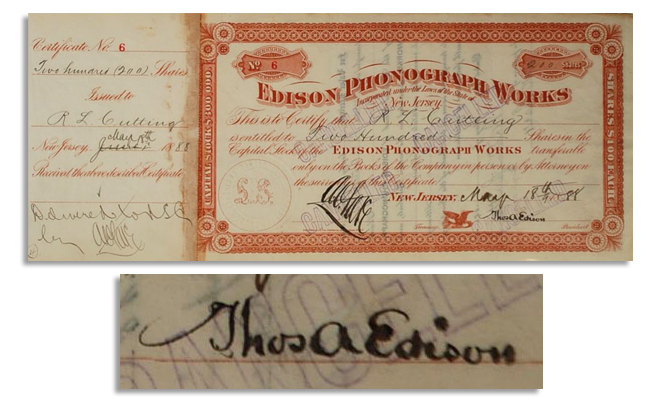 Certificate No. 6
Two hundred (200) Shares
Issued to
R L Cutting
May 18th
New Jersey, 1888
Received the above described Certificate
No 6
200
EDISON PHONOGRAPH WORKS
Incorporated under the Laws of the State of
New Jersey.
This is to Certify that R L Cutting
is entitled to Two Hundred Shares in the
Capital Stock of the EDISON PHONOGRAPH WORKS transferable
only on the Books of the Company in person or by Attorney on
the surrender of this Certificate.
NEW JERSEY, May 18th 1888
Thos A Edison
Treasurer President
CAPITAL STOCK
SHARES $100 EACH
CANCELLED
Thos A Edison